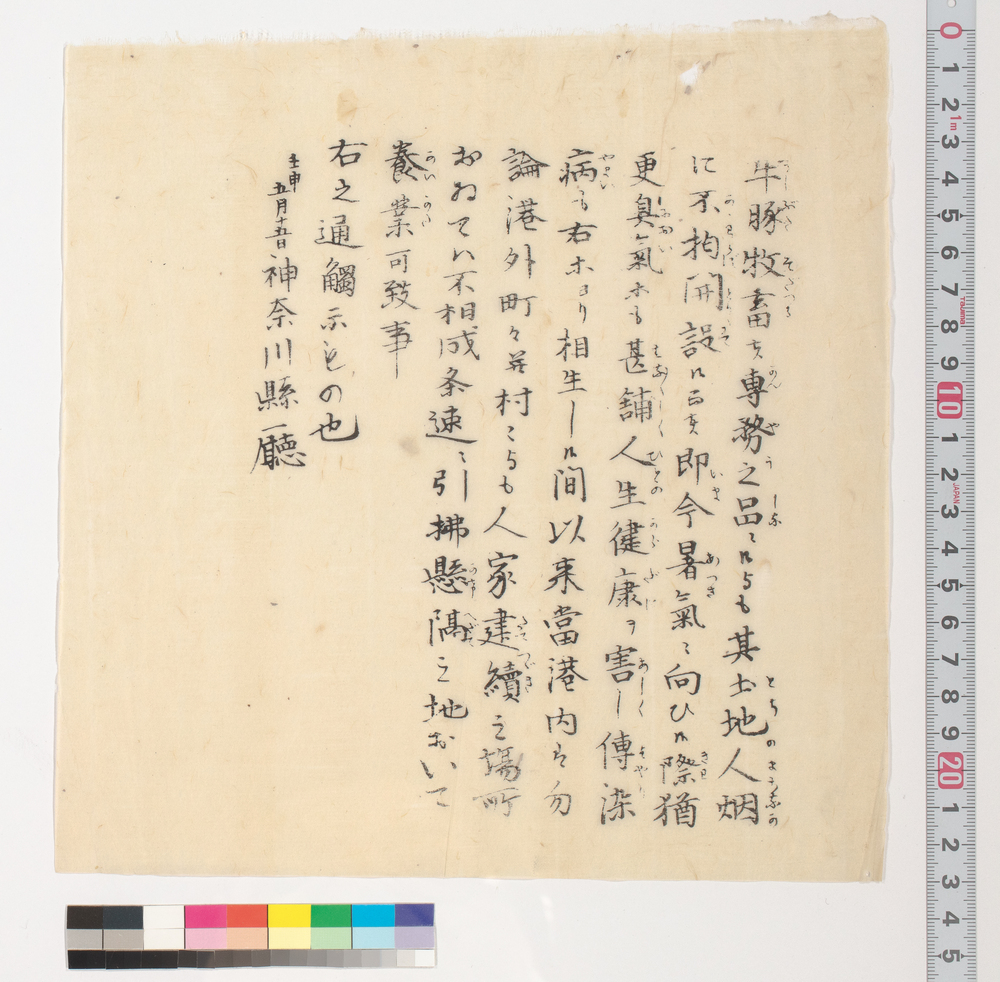 牛豚牧畜は専務之品ニ候得とも其土地人烟
に不拘開設候而は即今暑氣ニ向ひ候際猶
更臭氣ホも甚舗人生健康ヲ害し傳染
病も右ホより相生し候間以来當港内は勿
論港外町々并村々とも人家建續之場所
おゐてハ不相成条速ニ引拂懸隔之地おいて
養業可致事
右之通觸示もの也
壬申五月十五日神奈川縣廳
0 1 2 3 4 5 6 7 8 9 10 1 2 3 4 5 6 7 8 9 20 1 2 3 4 5
1m
Tajima
JAPAN